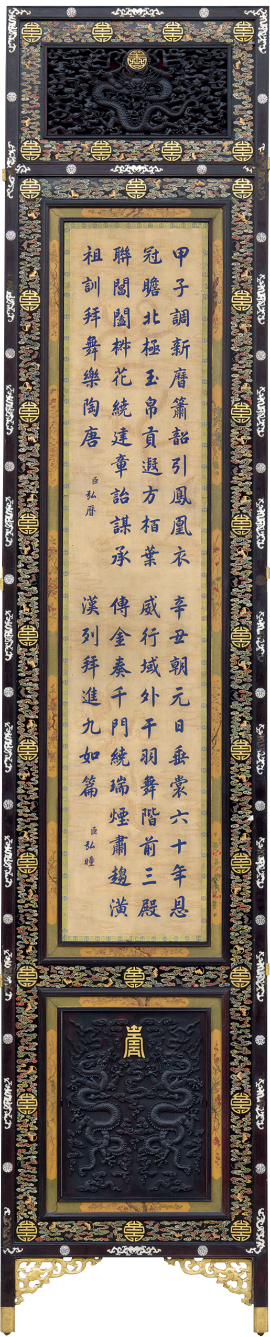 甲子調新曆簫韶引鳳凰衣
冠瞻北極玉帛貢遐方栢葉
聯閶闔椒花繞建章詒謀承
祖訓拜舞樂陶唐
臣弘曆
辛丑朝元日垂裳六十年恩
威行域外干羽舞階前三殿
傳金奏千門繞瑞煙肅趨潢
漢列拜進九如篇
臣弘曈